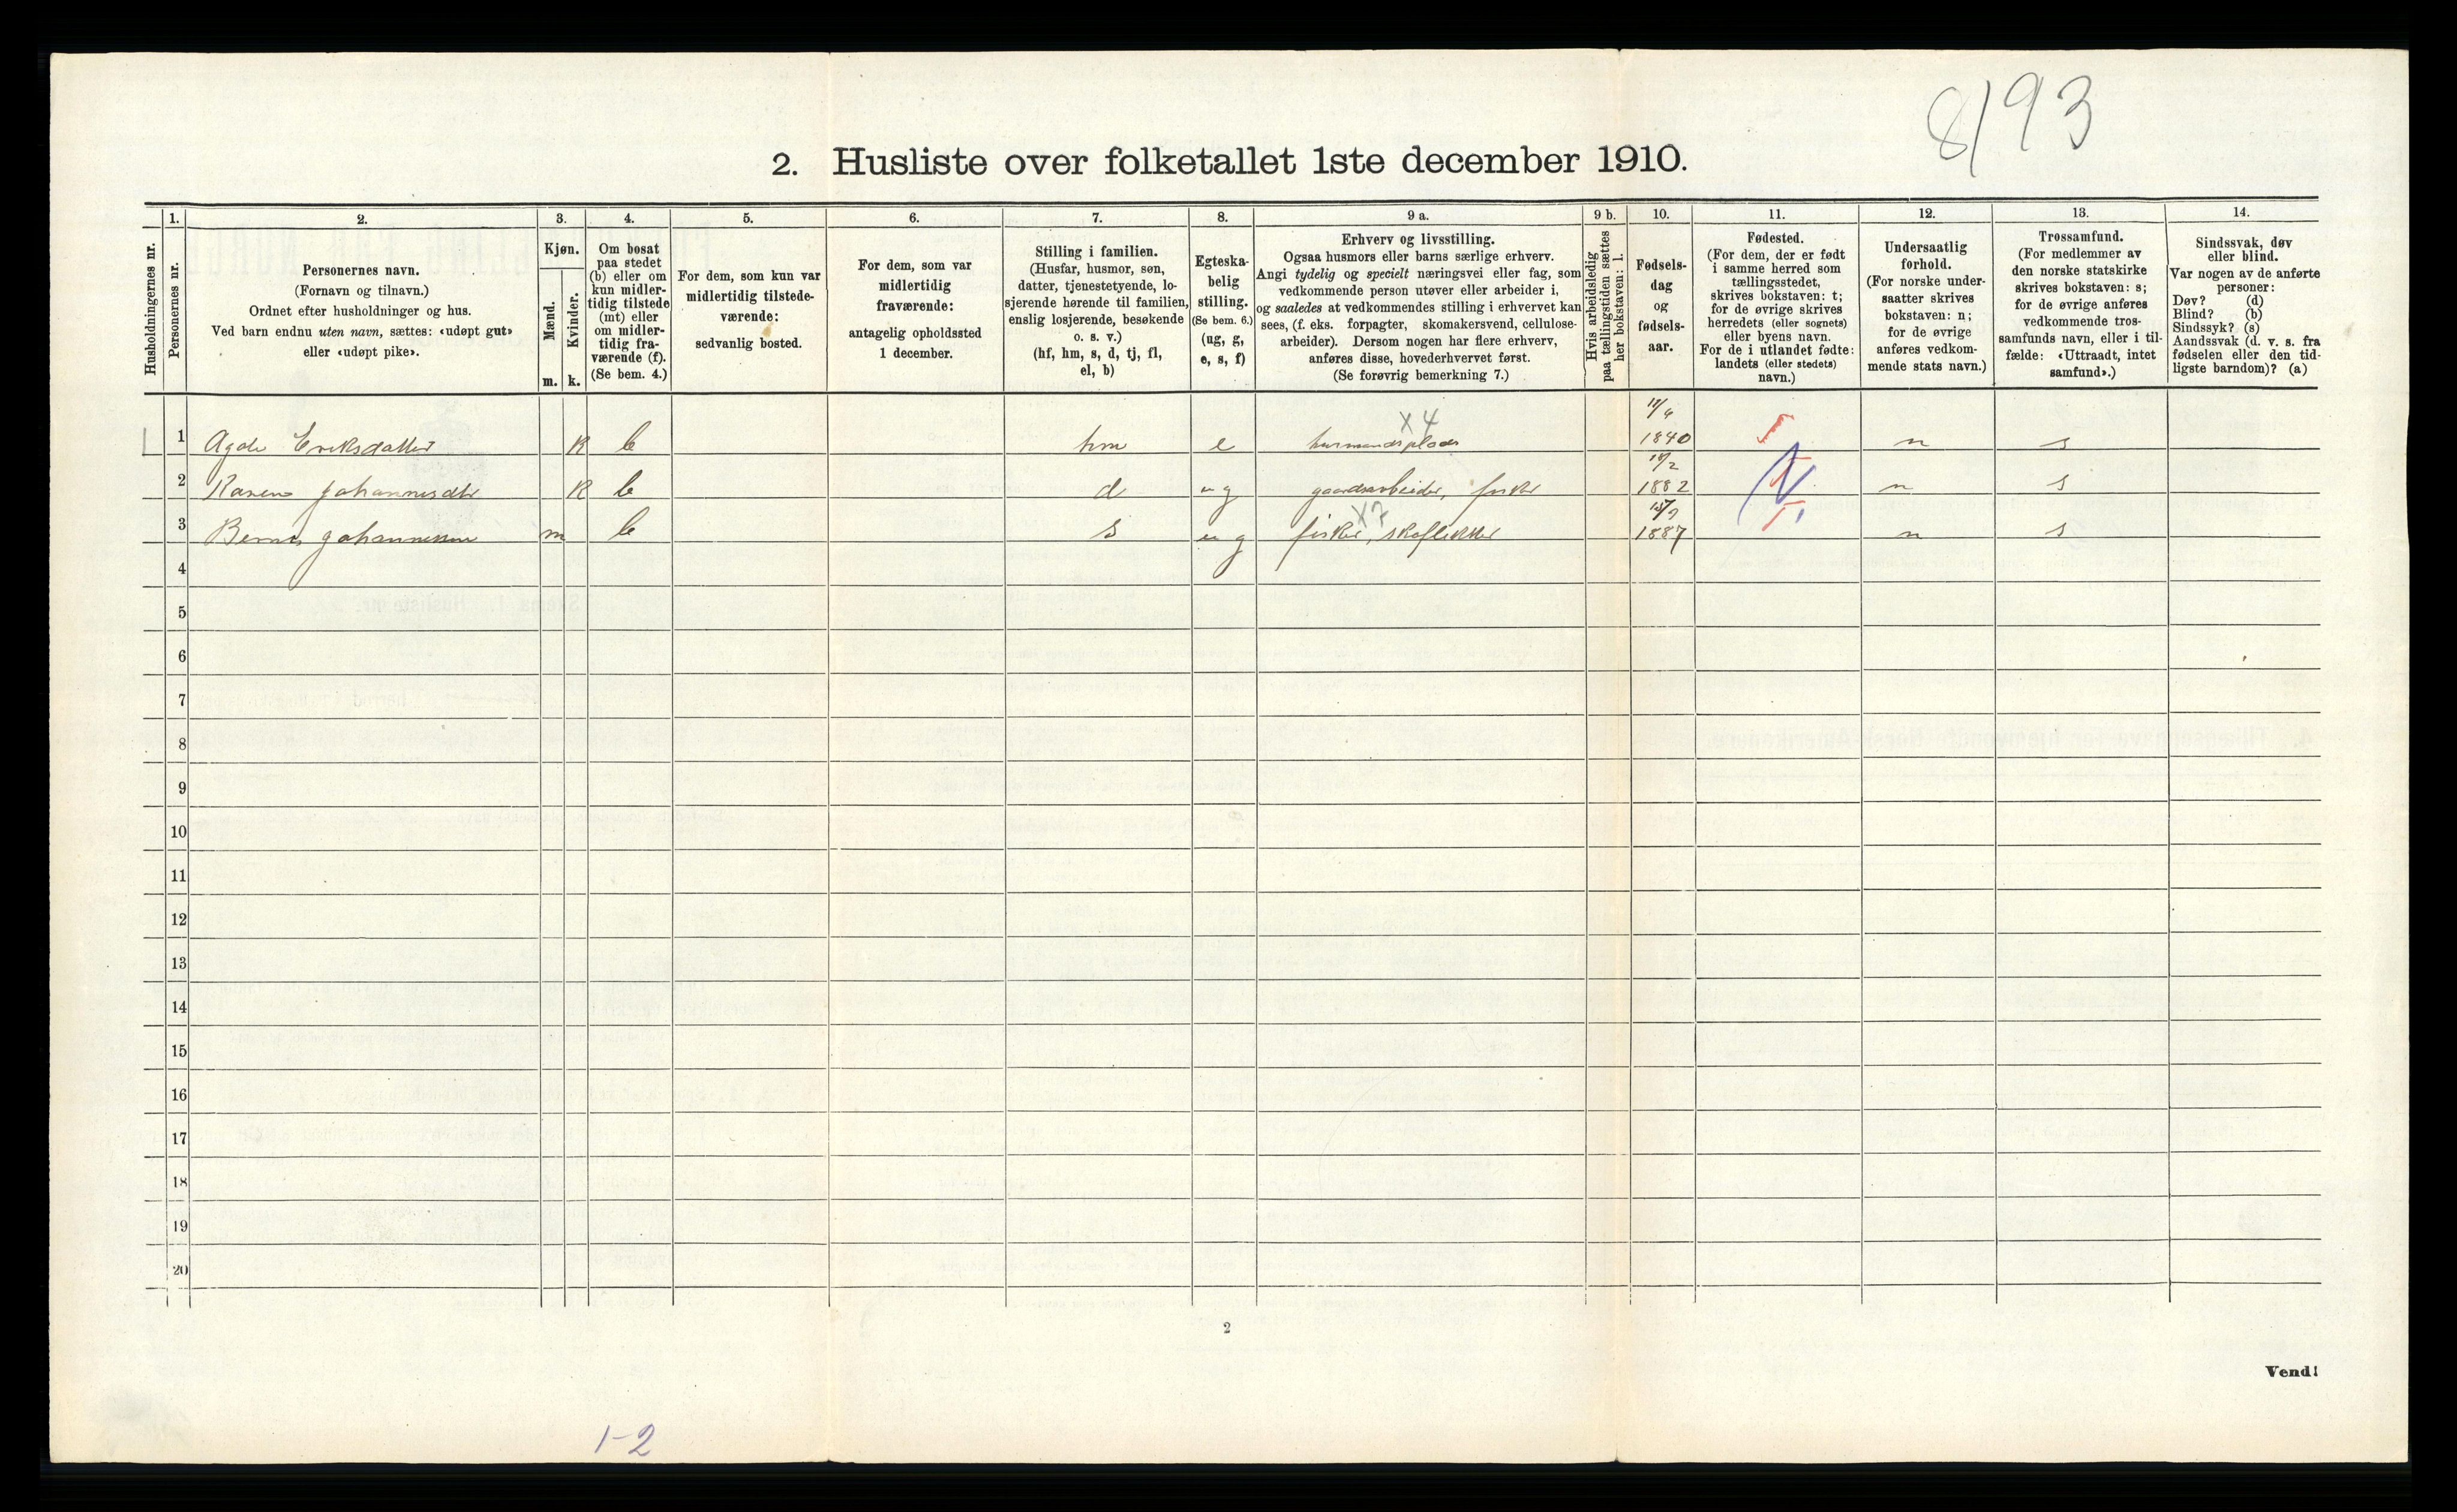 8/93
2. Husliste over folketallet 1ste december 1910.
Husholdningernes nr.
1.
Personernes nr.
2.
Personernes navn.
(Fornavn og tilnavn.)
Ordnet efter husholdninger og hus.
Ved barn endnu uten navn, sættes: «udøpt gut»
eller «udøpt pike».
3.
Kjøn.
Mænd.
Kvinder.
m.
k.
4.
Om bosat
paa stedet
(b) eller om
kun midler-
tidig tilstede
(mt) eller
om midler-
tidig fra-
værende (f).
(Se bem. 4.)
5.
For dem, som kun var
midlertidig tilstede-
værende:
sedvanlig bosted.
6.
For dem, som var
midlertidig
fraværende:
antagelig opholdssted
1 december.
7.
Stilling i familien.
(Husfar, husmor, søn,
datter, tjenestetyende, lo-
sjerende hørende til familien,
enslig losjerende, besøkende
o. s. v.)
(hf, hm, s, d, tj, fl,
el, b)
8.
Egteska-
belig
stilling.
(Se bem. 6.)
(ug, g,
e, s, f)
9 a.
Erhverv og livsstilling.
Ogsaa husmors eller barns særlige erhverv.
Angi tydelig og specielt næringsvei eller fag, som
vedkommende person utøver eller arbeider i,
og saaledes at vedkommendes stilling i erhvervet kan
sees, (f. eks. forpagter, skomakersvend, cellulose-
arbeider). Dersom nogen har flere erhverv,
anføres disse, hovederhvervet først.
(Se forøvrig bemerkning 7.)
9 b.
Hvis arbeidsledig
paa tællingstiden sættes
her bokstaven: l.
10.
Fødsels-
dag
og
fødsels-
aar.
11.
Fødested.
(For dem, der er født
i samme herred som
tællingsstedet,
skrives bokstaven: t;
for de øvrige skrives
herredets (eller sognets)
eller byens navn.
For de i utlandet fødte:
landets (eller stedets)
navn.)
12.
Undersaatlig
forhold.
(For norske under-
saatter skrives
bokstaven: n;
for de øvrige
anføres vedkom-
mende stats navn.)
13.
Trossamfund.
(For medlemmer av
den norske statskirke
skrives bokstaven: s;
for de øvrige anføres
vedkommende tros-
samfunds navn, eller i til-
fælde: «Uttraadt, intet
samfund».)
14.
Sindssvak, døv
eller blind.
Var nogen av de anførte
personer:
Døv? (d)
Blind? (b)
Sindssyk? (s)
Aandssvak (d. v. s. fra
fødselen eller den tid-
ligste barndom)? (a)
x4
1 Eriksdatter k b hm e husmandsplads 1840 n s
2 Johannesdtr k b d ug gaardsarbeider, fisker 1882 n s
x7
3 Johannessen m b s ug fisker, skoflikker 1887 n s
4
5
6
7
8
9
10
11
12
13
14
15
16
17
18
19
20
2
Vend!
1-2